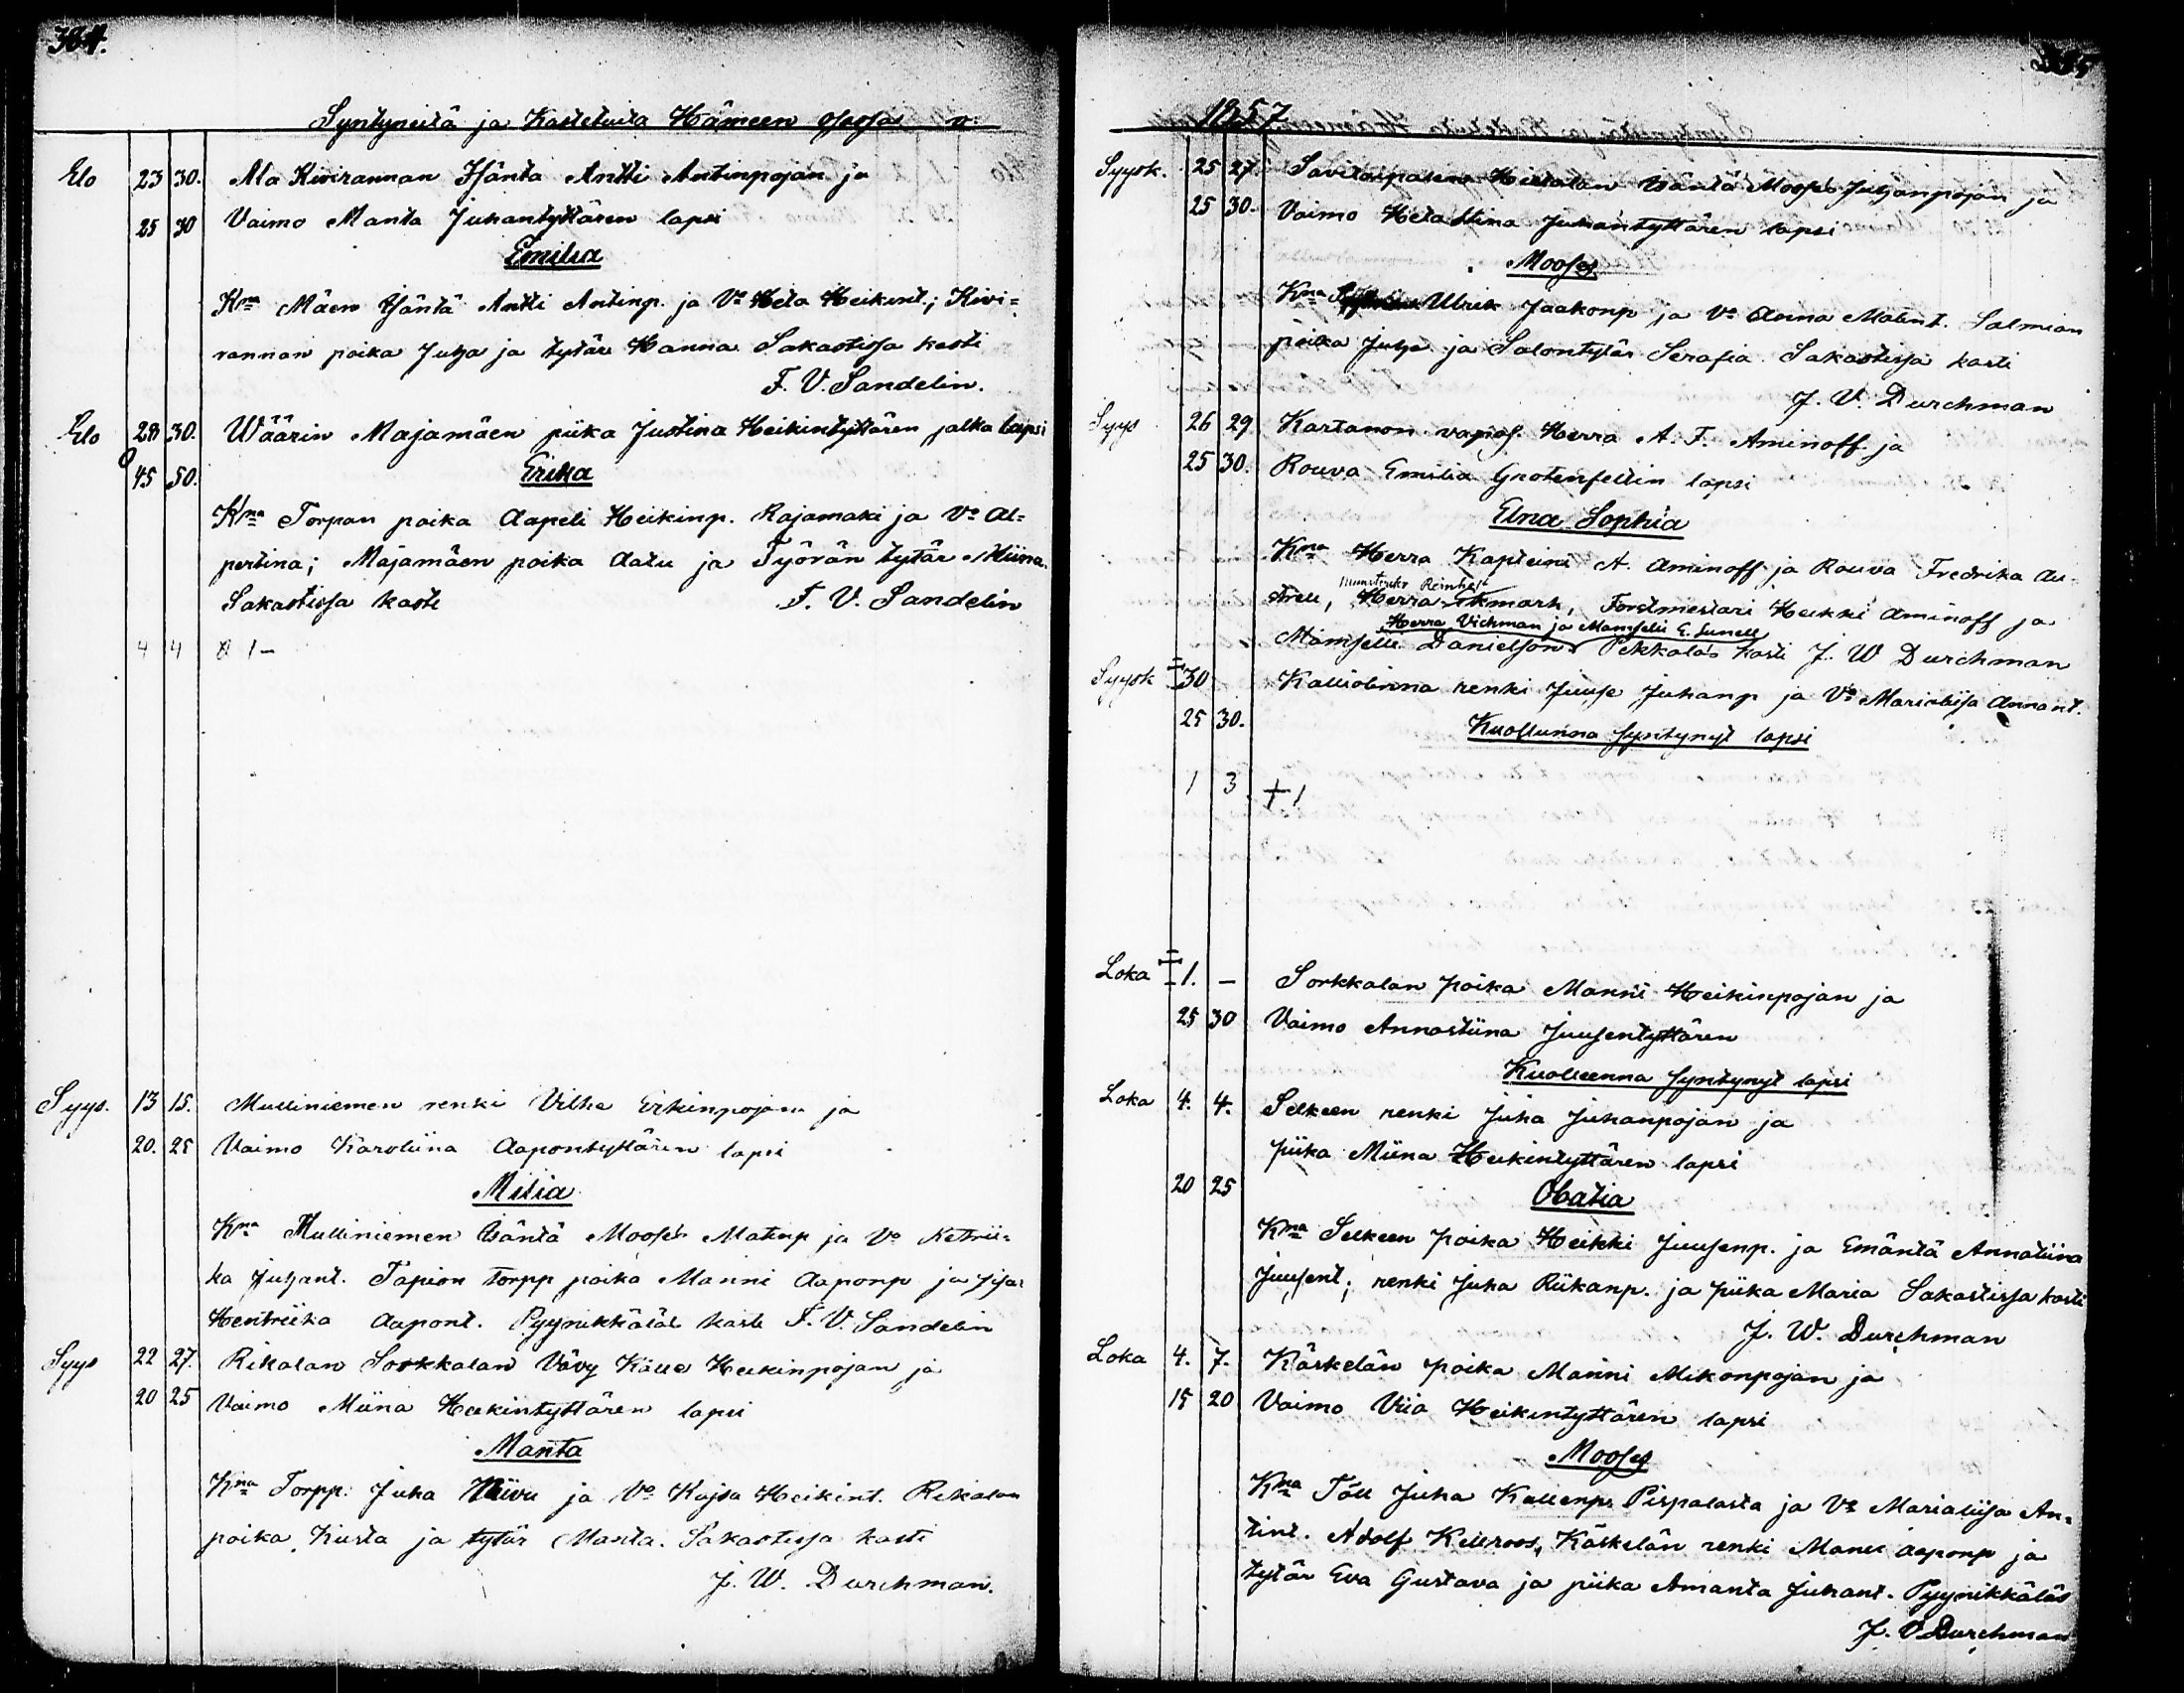 384.
Syntyneitä ja Kastetuita Hämeen osasa v.
Elo 23 30. Ala Kivirannan Isäntä Antti Antinpojan ja
25 30 Vaimo Manta Juhantyttären lapsi
Emilia
Kna Mäen Isäntä Antti Antinp. ja Vo Heta Heikint.; Kivi=
rannan poika Juha ja tytär Hanna Sakastissa kasti
F. V. Sandelin.
Elo 28 30. Wäärin Majamäen piika Justina Heikintyttären jalka lapsi
45 50. Erika
Kna Torpan poika Aapeli Heikinp. Rajamäki ja Vo Al=
pertina; Majamäen poika Aatu ja Työrän tytär Miina.
Sakastissa kasti F. V. Sandelin
4 4 1 –
Syys. 13 15. Mulliniemen renki Vilhe Erkinpojan ja
20. 25 Vaimo Karoliina Aapontyttären lapsi
Milia
Kna Mulliniemen Isäntä Mooses Matinp ja Vo Ketrii=
ka Juhant. Tapion torpp poika Manni Aaponp ja sisar
Hentriika Aapont. Pyynikkäläs kasti F. V. Sandelin
Syys 22 27. Rikalan Sorkkalan Vävy Kalle Heikinpojan ja
20 25 Vaimo Miina Heikintyttären lapsi
Manta
Kna Torpp. Juha ja Vo Kajsa Heikint. Rikalan
poika Kusta ja tytär Manta. Sakastissa kasti
J. W. Durchman.
1857
Syysk. 25 27. Savilaipaleen Isäntä Mooses Juhanpojan ja
25 30. Vaimo Hetastina Juhantyttären lapsi
Mooses
Kna Ulrik Jaakonp ja Vo Anna Matint. Salmian
poika Juha ja Salontytär Serafia. Sakastissa kasti
J. V. Durchman
Syys 26 29 Kartanon Herra A. F. Aminoff ja
25 30. Rouva Emilia Grotenfeltin lapsi
Elna Sophia
Kna Herra Kapteini A. Aminoff ja Rouva Fredrika Au=
strell, Herra Ekmark, Forstmestari Heikki Aminoff ja
Herra Vichman ja Mamselli E. Lunell
Mamselli Danielson Pekkalas kasti J. W Durchman
Syysk 30 Kalliolinna renki Juuse Juhanp ja Vo Marialiisa Annant.
25 30. Kuollunna syntynyt lapsi
1 3 + 1
Loka 1. – Sorkkalan poika Manni Heikinpojan ja
25 30 Vaimo Annastiina Juusentyttären
Kuolleenna syntynyt lapsi
Loka 4. 4. Selkeen renki Juha Juhanpojan ja
piika Miina Heikintyttären lapsi
20 25 Obatia
Kna Selkeen poika Heikki Juusenp. ja Emäntä Annatiina
Juusent; renki Juha Riikanp. ja piika Maria Sakastissa kasti
J. W. Durchman
Loka 4. 7. Käskelän poika Manni Mikonpojan ja
15 20 Vaimo Viia Heikintyttären lapsi
Mooses
Kna Töll Juha Kallenp. Pispalasta ja Vo Marialiisa An=
tint. Adolf Kellroos, Käskelän renki Manu Aaponp ja
tytär Eva Gustava ja piika Amanta Juhant. Pyynikkäläs
J. V Durchman